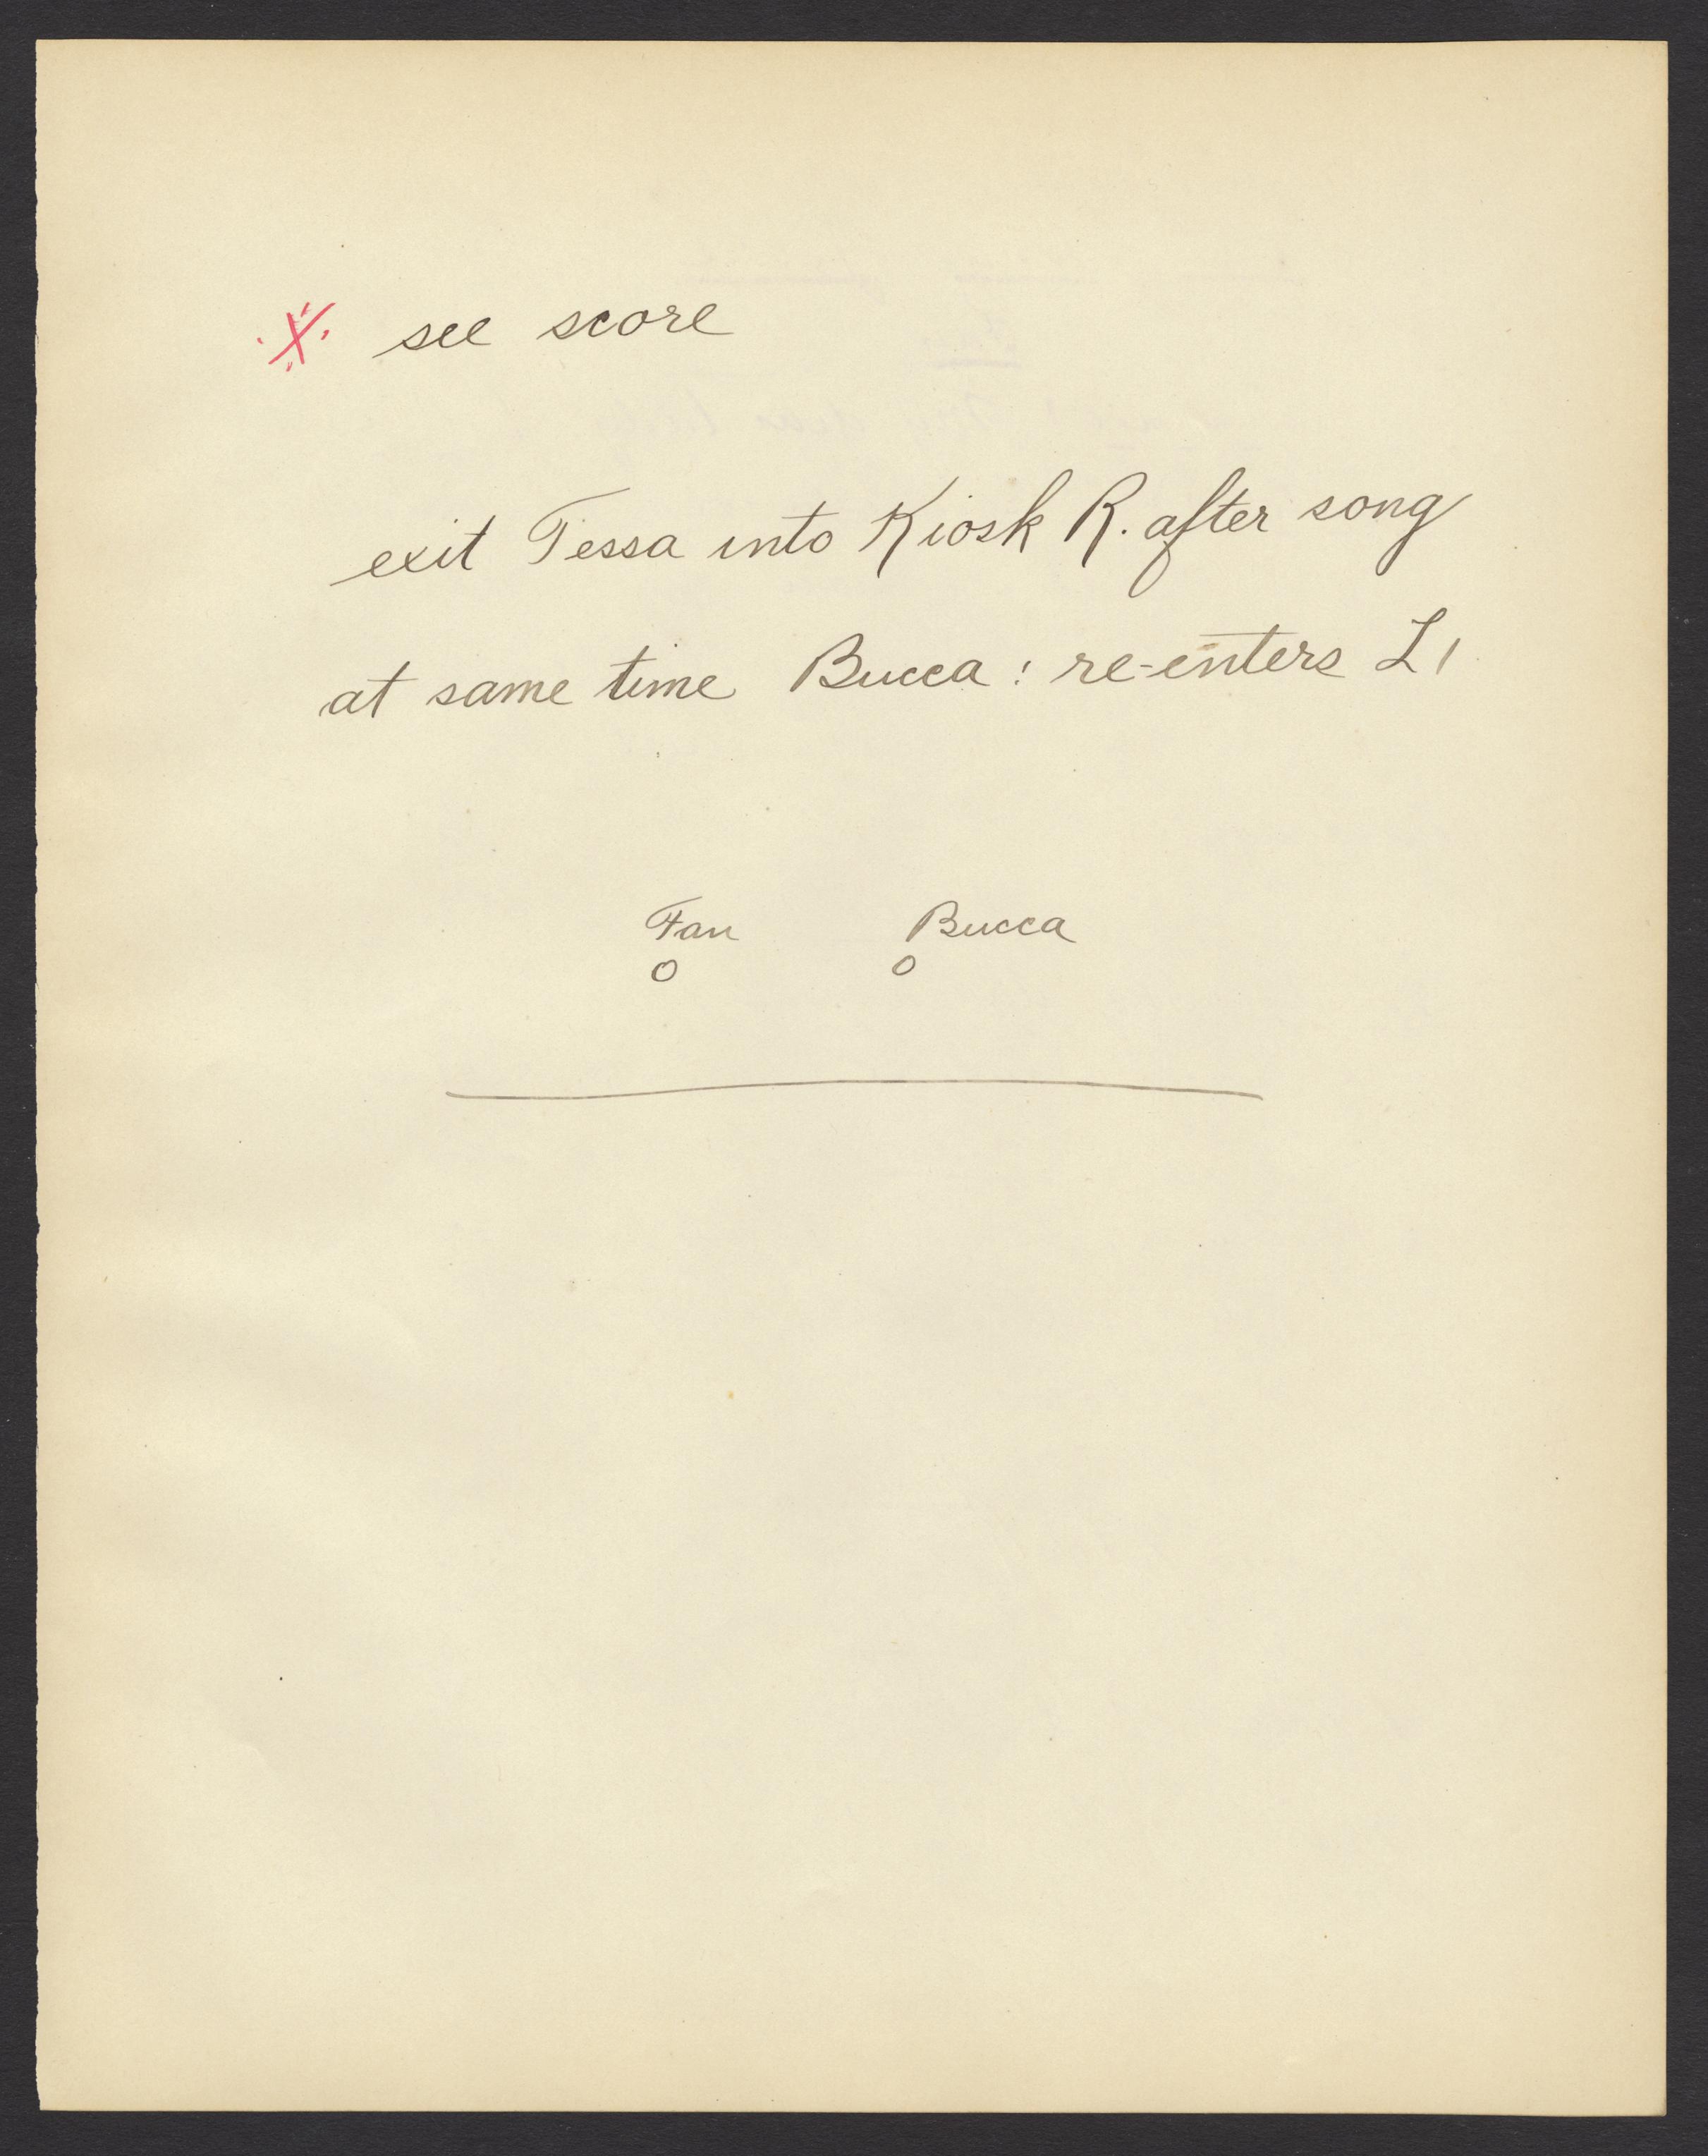 X see score
exit Tessa into Kiosk R. after song
at same time Bucca: re-enters L1
Fan Bucca
o o